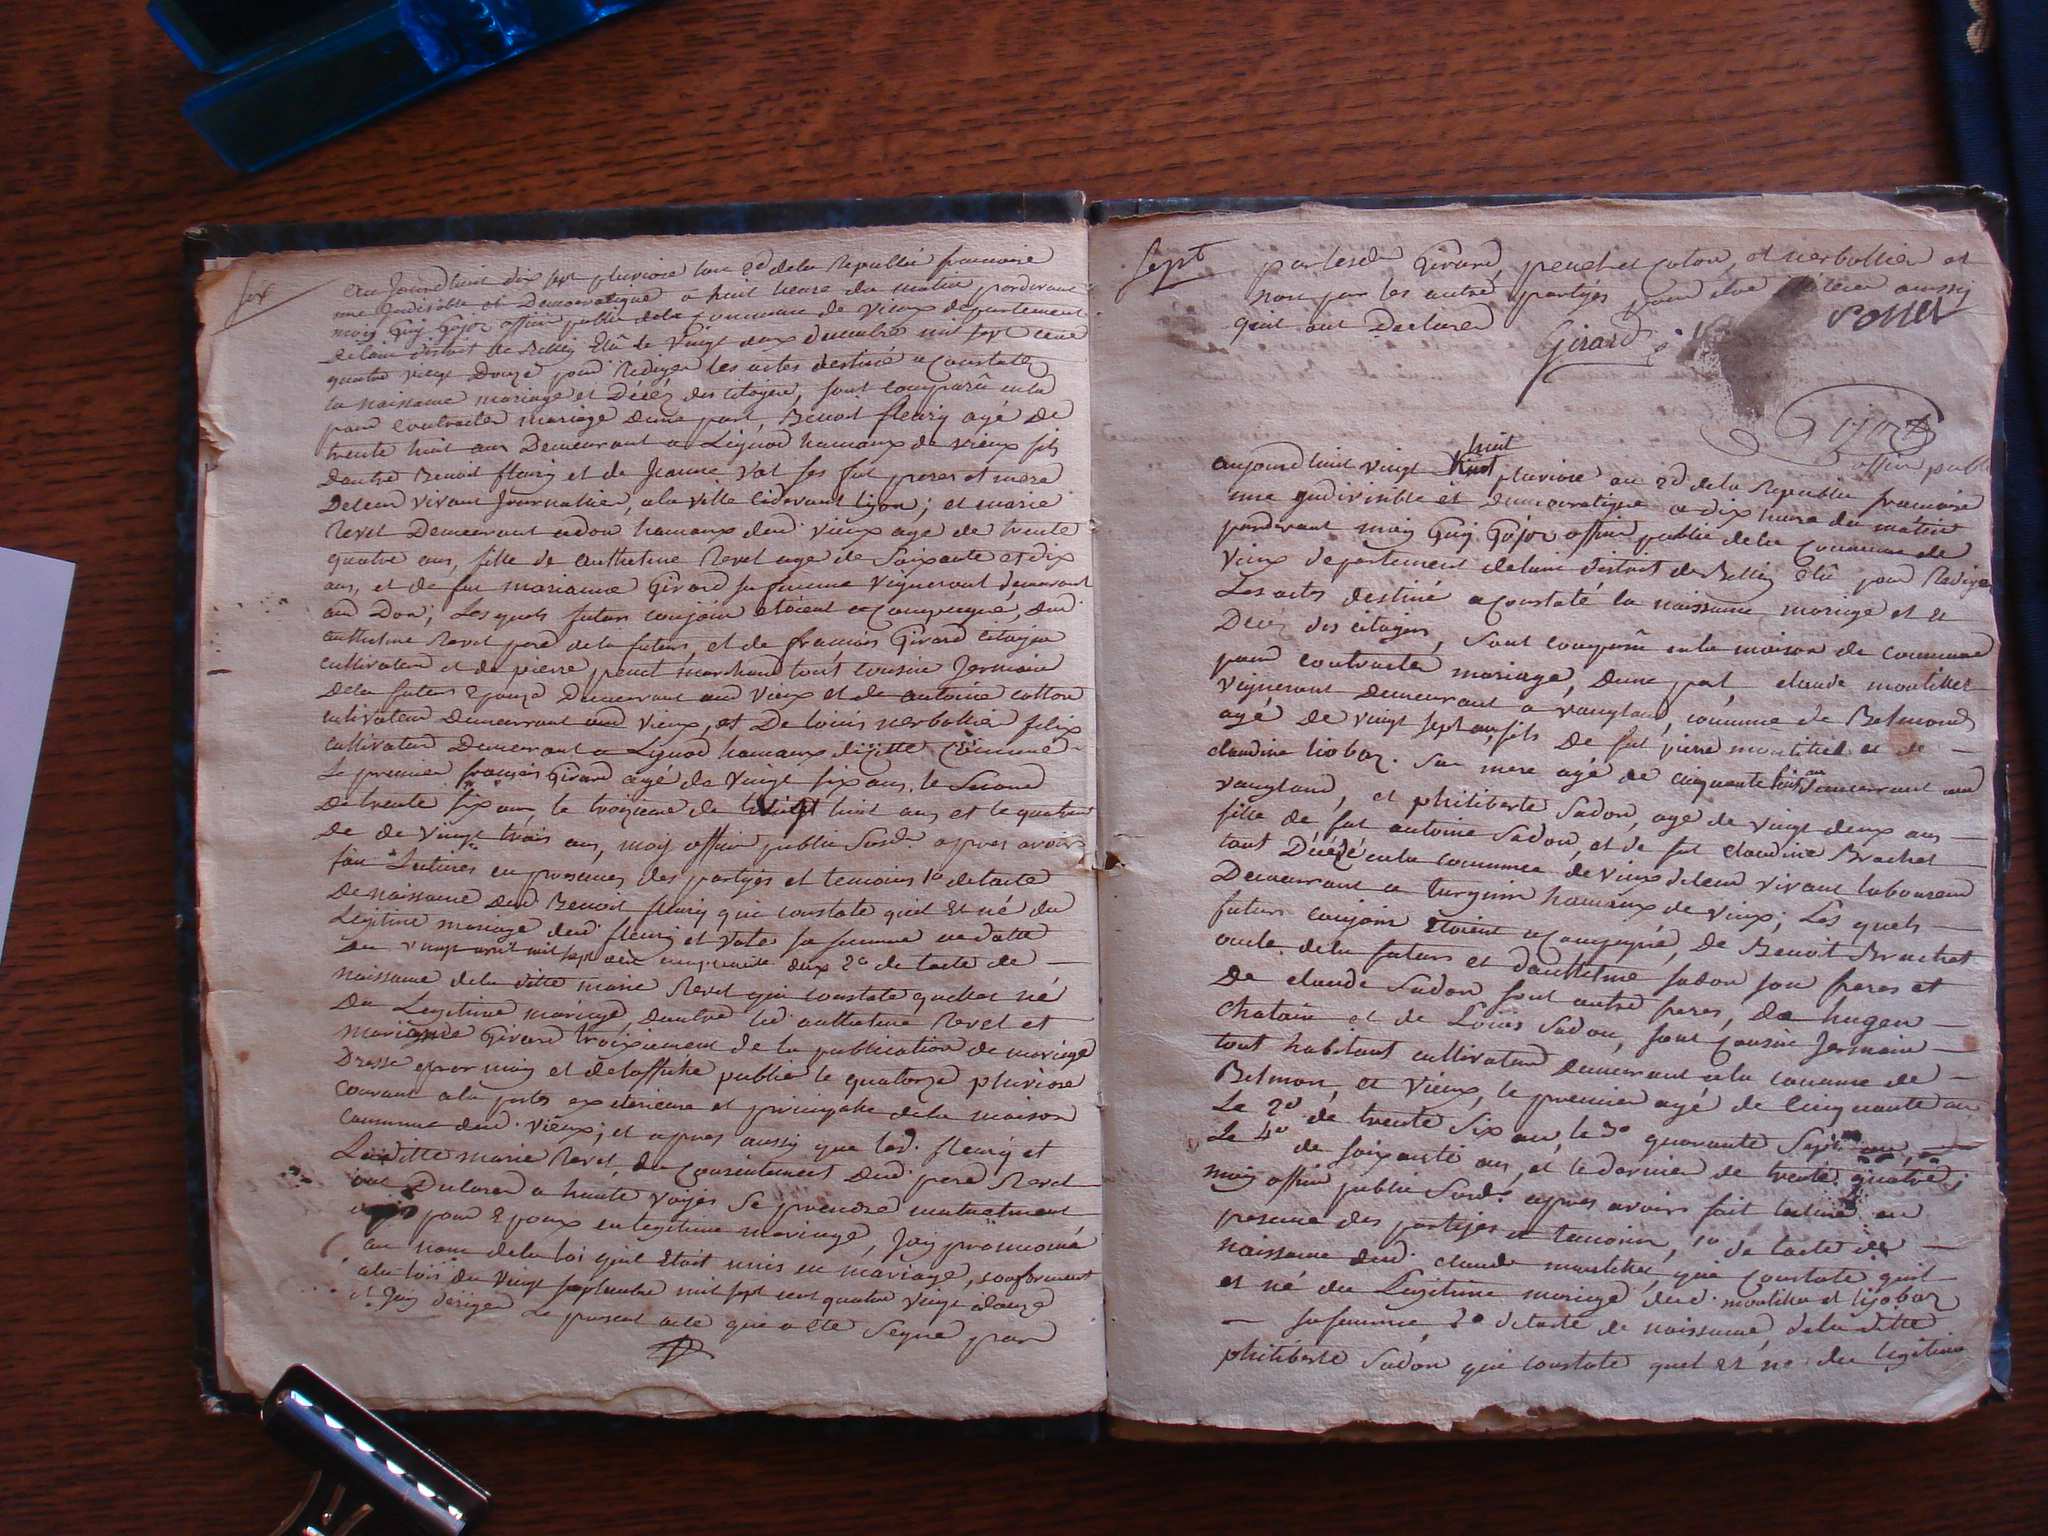 six
aujourdhuit dix sept pluviose lan 2d dela Republic francaise
une Indivisible et Democratique a huit heure du matin pardevant
moiy Guy Gojoz officier public dela commune de vieux departement
De lain district de Belley Elû de vingt deux decembre mil sept cent
quatre vingt Douze pour Rediger les actes destiné a Constater
la naissance mariage et Décéz des citoyens, sont comparû
pour contracter mariage dune part, Benoit fleury agé de
trente huit ans Demeurant a Lignod hameaux de vieux fils
dautre Benoit fleury et de Jeanne ses pere et mere
De leur vivant Journallier, a la ville cidevant Lyon; et marie
Revel Demeurant adon hameaux dud. vieux age de trente
quatre ans, fille de anthelme Revel age de Soixante et dix
ans, et de fut marianne Girard sa femme vigneront demeurant
aud Don; Les quels futurs conjoin etoient acompagné, dud.
anthelme Revel pere de la future, et de françois Girard citoyen
cultivateur et de pierre penet marchand tout cousin Jermain
dela future Epouze Demeurant aud vieux et de antoine cotton
cultivateur Demeurrant aud vieux, et De louis nerbollier felix
cultivateur Demeurant a Lignod hameaux dicette Commune
Le premier françois Girard agé de vingt six ans, le Second
De trente six ans, le troizieme de huit ans et le quatrieme
de de vingt trois ans, moiy officier public Susd. apres avoir
fait Lectures en presences des partyes et temoins 1o delacte
De naissance dud Benoit fleury qui constate quil Et né du
Legitime mariage dud. fleury et sa femme
du vingt avril mil sept cent cinquante deux 2o de lacte de
naissance dela ditte marie Revel qui constate quelles né
Du Legitime mariage dautre led anthelme Revel et
marianne Girard troixiement de la publication de mariage
Dressé par moiy et delaffiche public le quatorze pluviose
courant a la porte exterieure et principale dela maison
commune dud. vieux; et apres aussy que led. fleury et
Laditte marie Revel, du Consentement dud. pere Revel
ont Declarer a haute voiyes Se prendre mutuelment
pour Epoux en legitime mariage, Jaiy prononcé
au nom dela loi quil Etoit unis en mariage, conforment
ala lois du vingt septembre mil sept cent quatre vingt douze
et Jaiy Rediger Le present acte que a Eté Segné par
Sept
par lesd Girard, penet et Coton, et nerbollier et
non par les autre partyes pour etre
quil ont Declarer
Girard
Gojoz
officier public
aujourdhuit vingt huit pluviose an 2d dela Republic francaise
une Indivisible et Democratique a dix heure du matin
pardevant moiy Guy Gojoz officier public dela Commune de
vieux departement delain district de Belley Elû pour Rediger
Les actes destiné a constaté la naissance mariage et
Décéz des citoyens, sont comparû en la maison de commune
pour contracter mariage, dune part, claude montillet
vigneront demeurant a vauglan, commune de Belmond
agé de vingt sept ans, fils De fut pierre montillet et de
claudine liobaz. Sa mere agé de cinquante huit an demeurrant aud
vaugland, et philiberte Sadon, age de vingt deux ans
fille de fut antoine Sadon, et de fut claudine Brachet
tout Décédé en la commune de vieux deleur vivant laboureur
Demeurant a turgnin hameaux de vieux; Les quels
futurs conjoin Etoient acompagné, De Benoit Brachet
oncle dela future et danthelme Sadon son freres et
De claude Sadon sont autre freres, De hugen
Chatain et de Louis Sadon, sont Cousin Jermain
tout habitant cultivateur demeurant ala commune de
Belmon, et vieux, le premier agé de Cinquante an
Le 2d de trente Six an, le 3e quarante Sept
Le 4e de soixante ans, et le dernier de trente quatre;
moiy officier public Susd. apres avoir fait lecture en
presence des partyes et temoins, 1o de lacte de
naissance dud. claude montillet, qui constate quil
et né du Legitime mariage dud. montillet et liobaz
sa femme, 2o delacte de naissance dela ditte
philiberte Sadon qui constate quel Et né du legitime